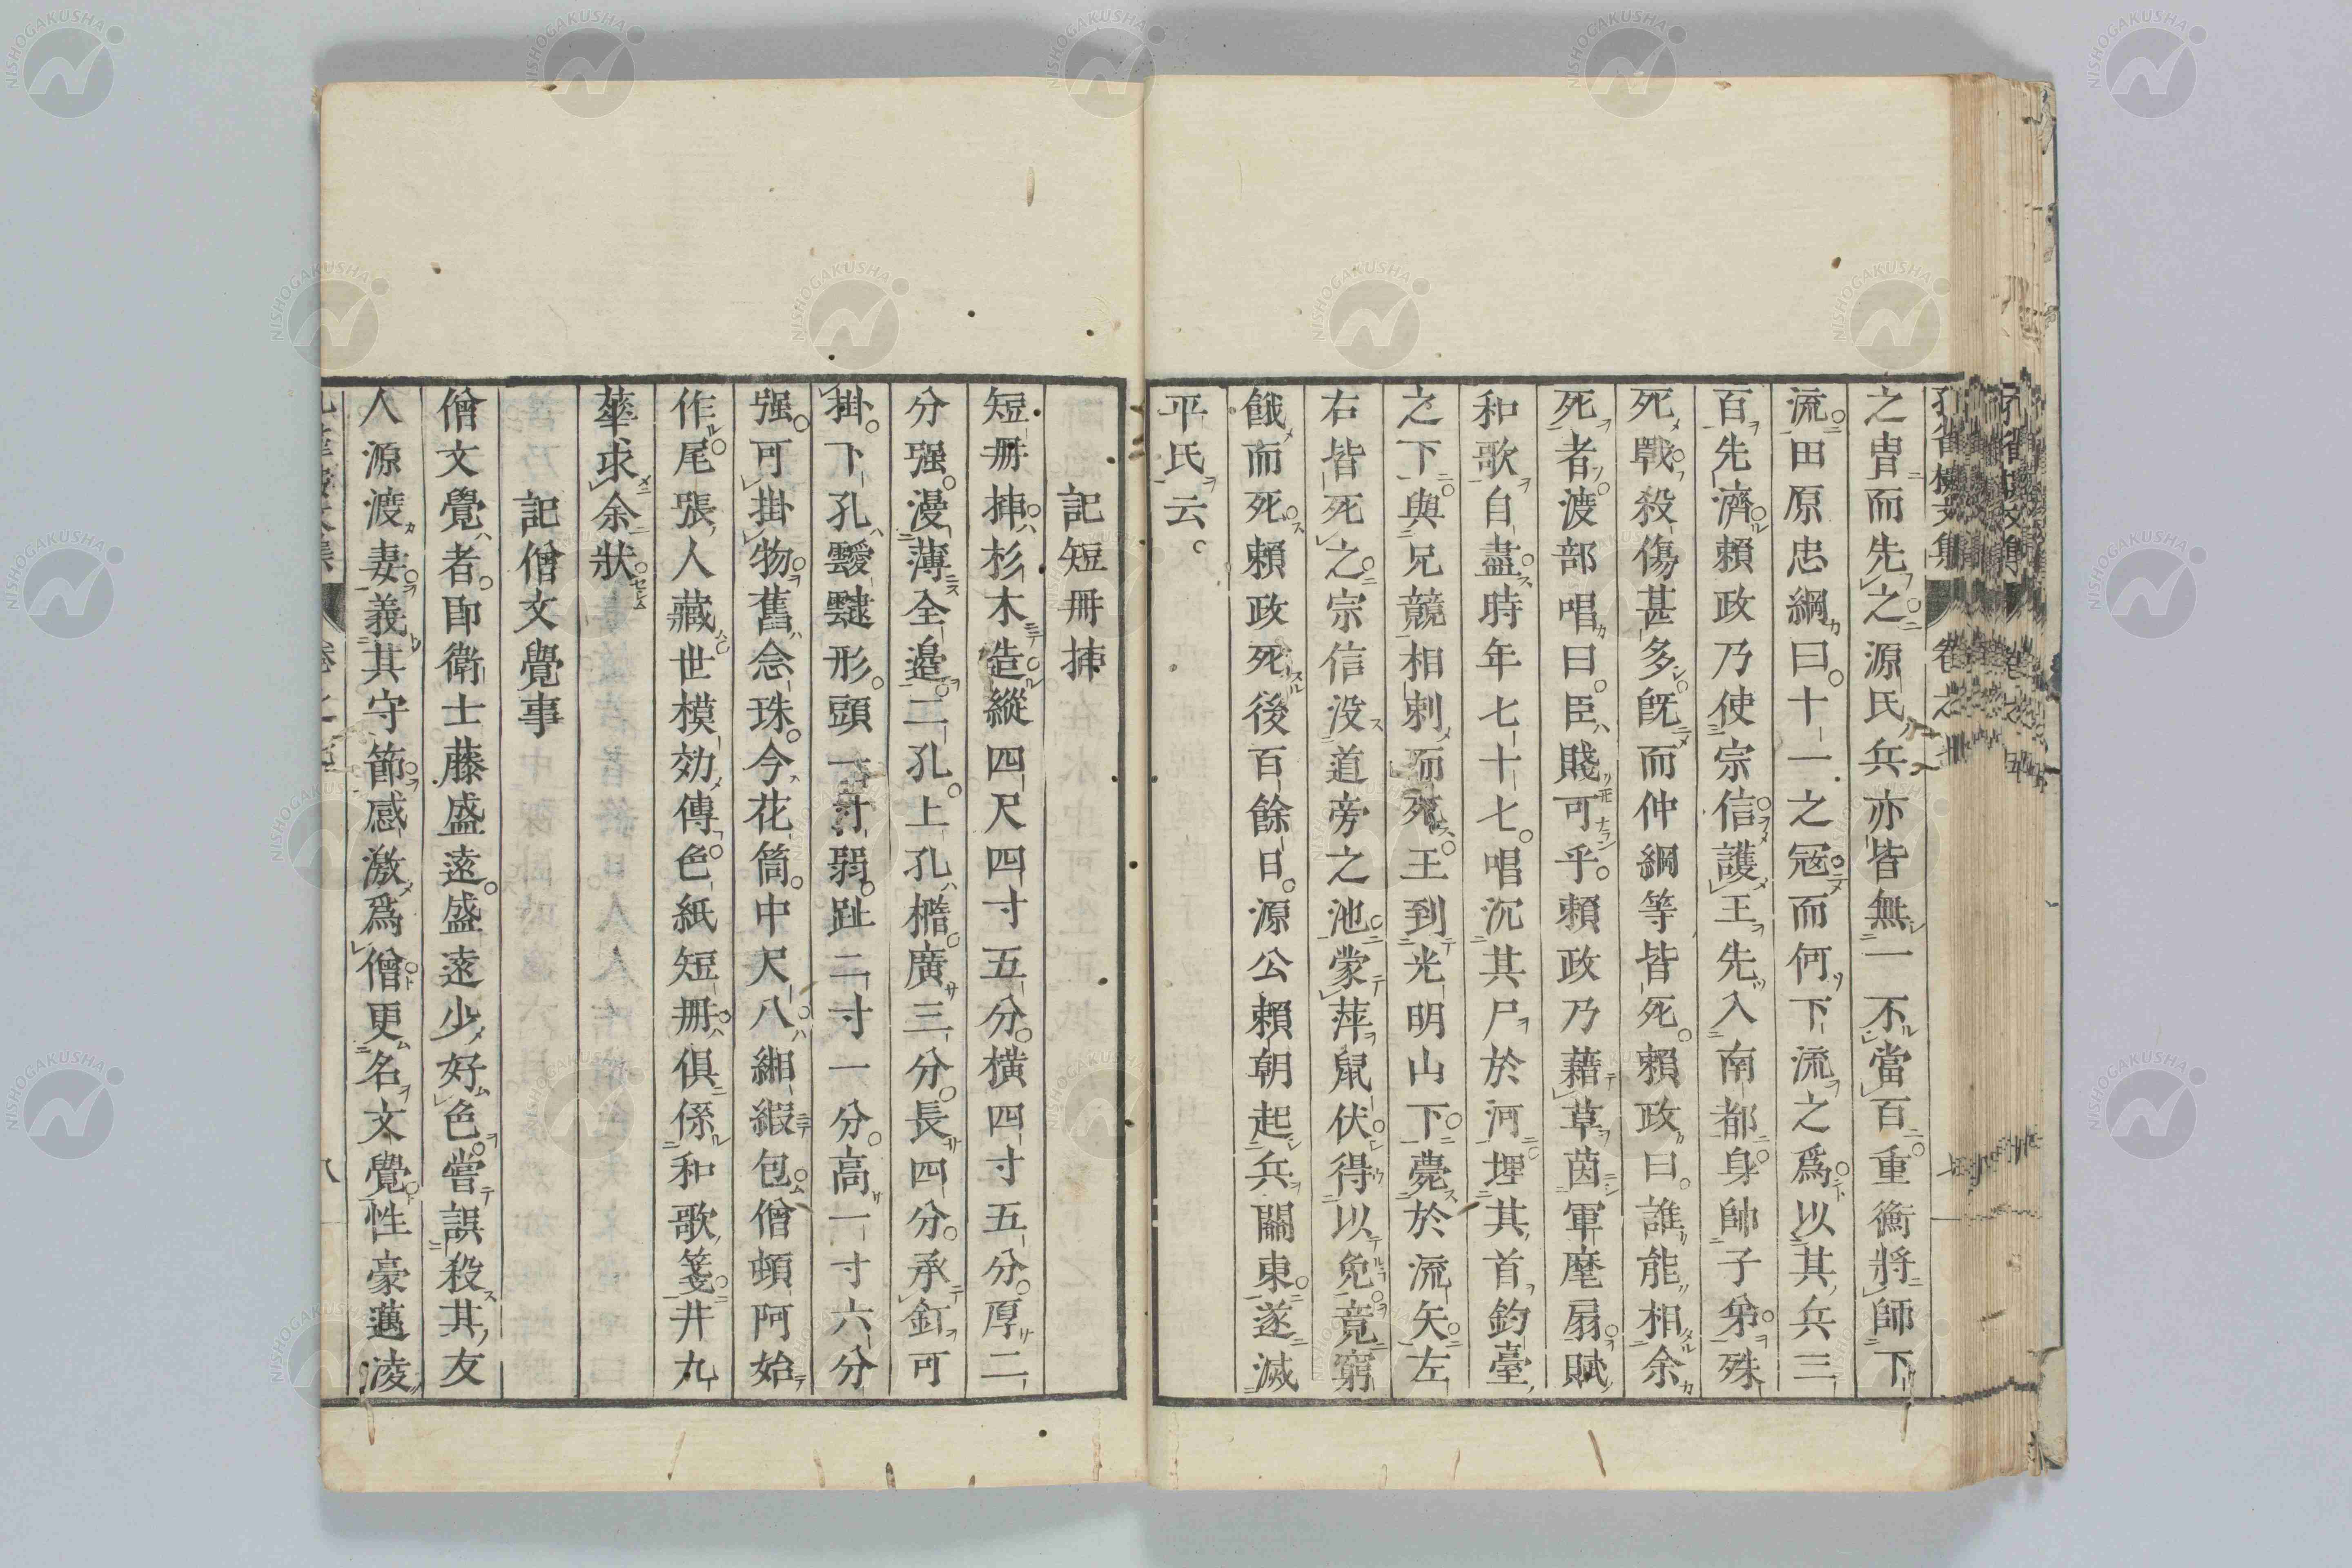 之冑而先之源氏兵亦皆無一不當百重衡將師下
流田原忠綱曰十一之冦而何下流之爲以其兵三
百先濟賴政乃使宗信護王先入南都身帥子弟殊
死戰殺傷甚多既而仲綱等皆死賴政曰誰能相余
死者渡部唱曰臣賤可乎賴政乃藉草茵軍麾扇賦
和歌自盡時年七十七唱沉其尸於河埋其首釣臺
之下與兄競相刺而死王到光明山下薨於流矢左
右皆死之宗信没道旁之池蒙萍鼠伏得以免竟窮
餓而死賴政死後百餘日源公賴朝起兵關東遂滅
平氏云
記短冊挿
短冊挿杉木造縱四尺四寸五分横四寸五分厚二
分强漫薄全邉二孔上孔橢廣三分長四分承釘可
掛下孔靉靆形頭一寸弱趾二寸一分高一寸六分
强可掛物舊念珠今花筒中尺八緗緞包僧頓阿始
作尾張人藏世模効傳色紙短冊俱係和歌箋井丸
華求余狀
記僧文覺事
僧文覺者卽衛士藤盛遠盛遠少好色嘗誤殺其友
人源渡妻義其守節感激爲僧更名文覺性豪邁凌